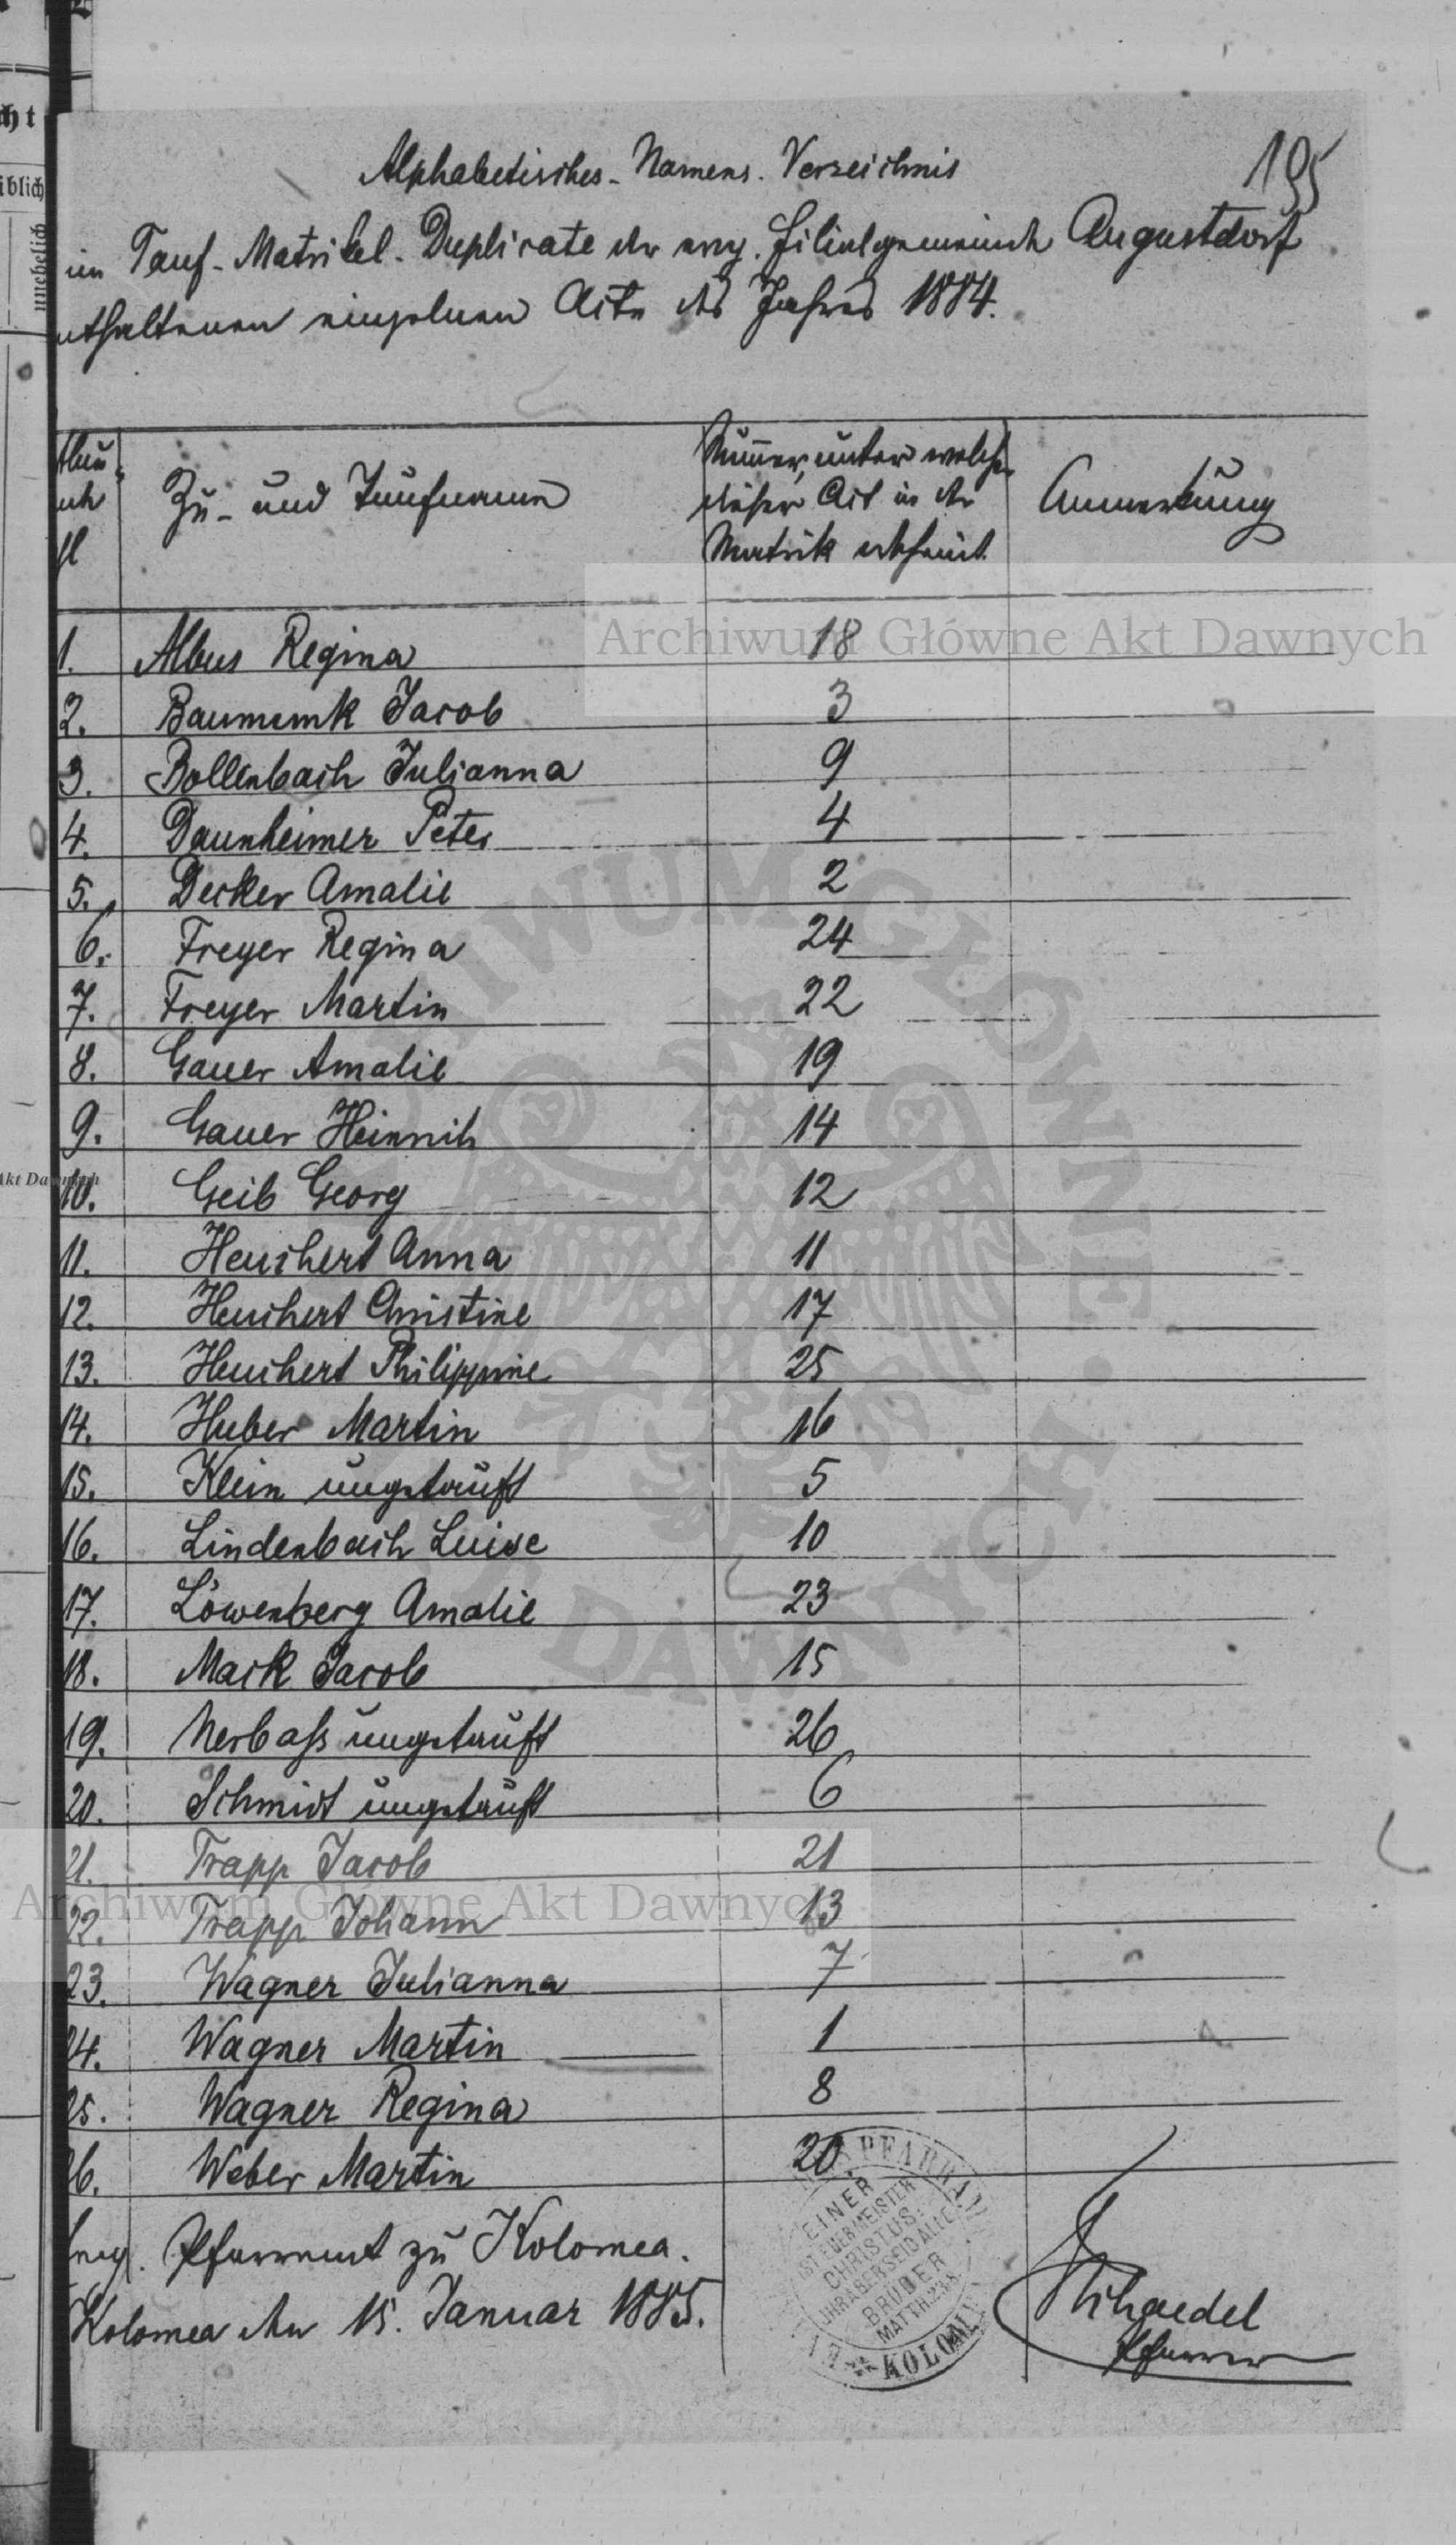 ht
iblich
unehelich
195
Alphabetisches - Namens - Verzeichnis
im Tauf - Matrikel - Duplicate der evg. Filialgemeinde Augustdorf
enthaltenen einzelnen Acte des Jahres 1884.
Zu- und Taufname
Numer, unter welcher
dieser Act in der
Matrik erscheint.
Anmerkung
Archiwum Główne Akt Dawnych
1. Albus Regina 18
2. Baumunk Jacob 3
3. Bollenbach Julianna 9
4. Daunheimer Peter 4
5. Decker Amalie 2
6. Freyer Regina 24
7. Freyer Martin 22
8. Gauer Amalie 19
9. Gauer Heinrich 14
10. Geib Georg 12
11. Heuchert Anna 11
12. Heuchert Christine 17
13. Heuchert Philippine 25
14. Huber Martin 16
15. Klein ungetauft 5
16. Lindenbach Luise 10
17. Löwenberg Amalie 23
18. Mack Jacob 15
19. Nerbaß ungetauft 26
20. Schmidt ungetauft 6
21. Trapp Jacob 21
Archiwum Główne Akt Dawnych
22. Trapp Johann 13
23. Wagner Julianna 7
24. Wagner Martin 1
25. Wagner Regina 8
26. Weber Martin 20
Evg. Pfarramt zu Kolomea.
Kolomea den 15. Januar 1885.
PFARRAMT
EINER
IST EUER MEISTER
CHRISTUS:
IHR ABER SEID ALLE
BRÜDER
MATTH. 23.8.
KOLOMEA
Pfarrer